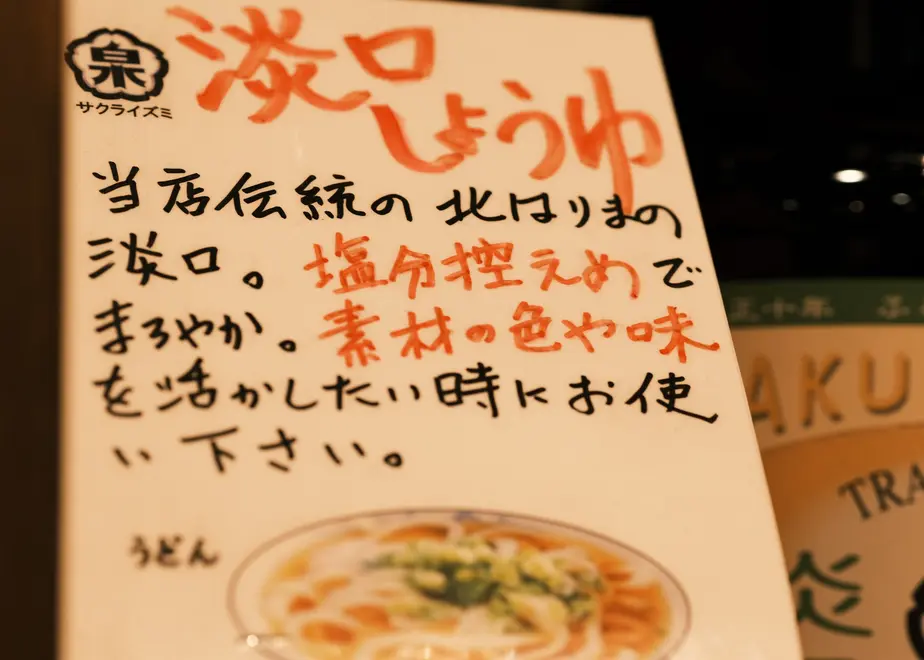 泉
サクライズミ
淡口
しょうゆ
当店伝統の北はりまの
淡口。塩分控えめで
まろやか。素材の色や味
を活かしたい時にお使
い下さい。
うどん
AKU
TRA